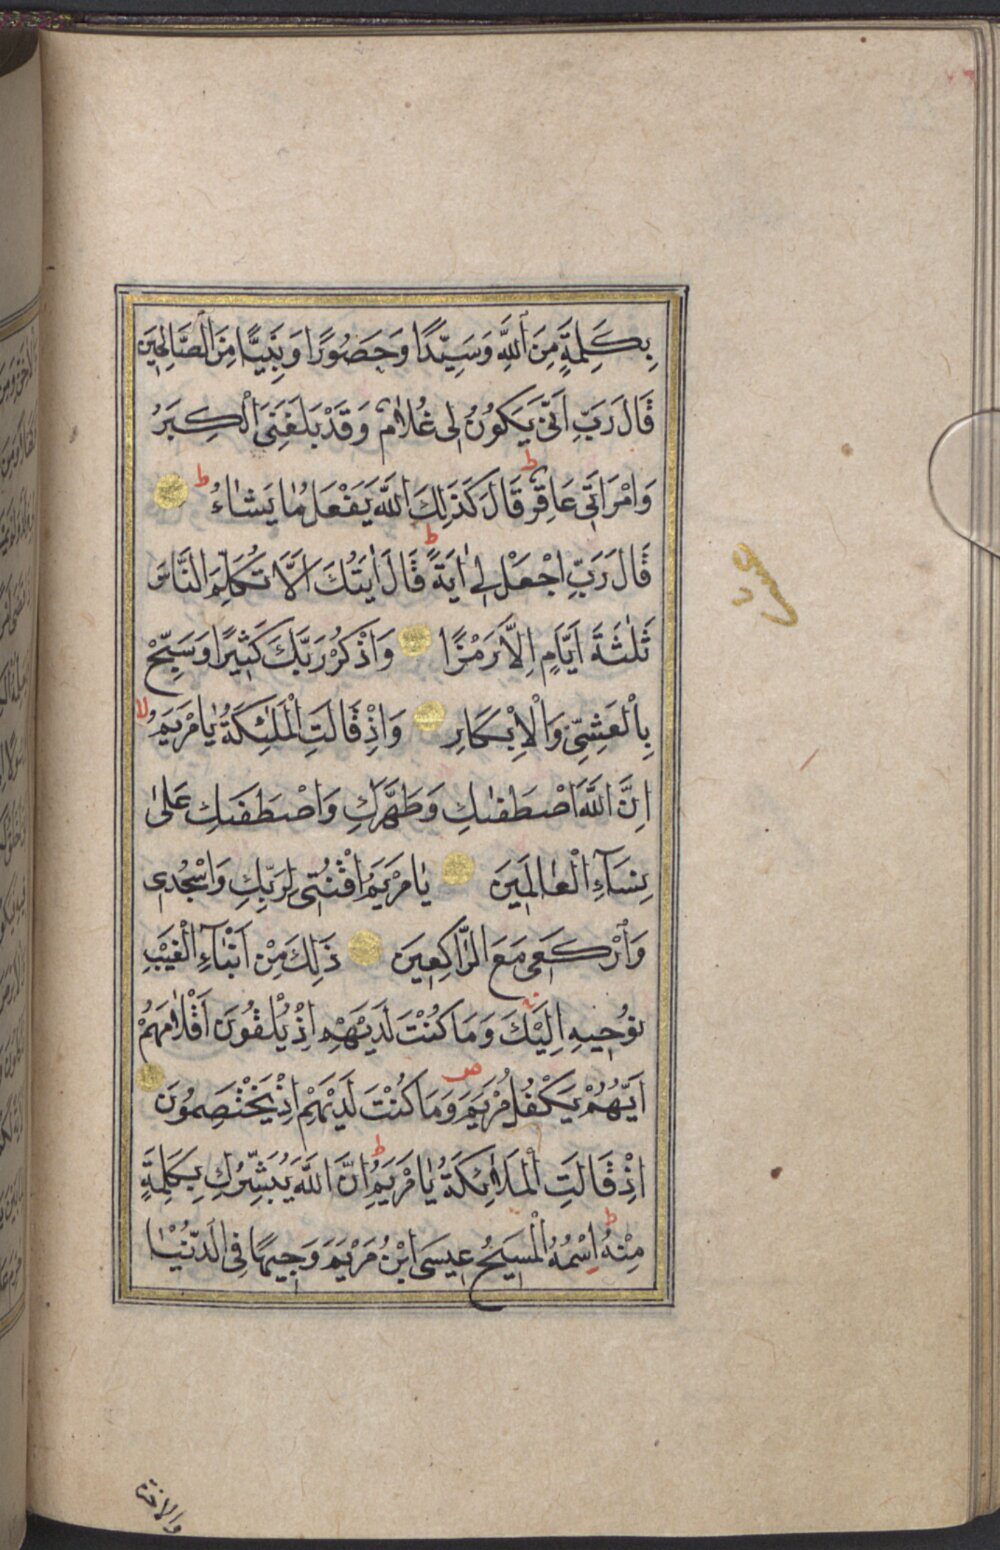 بِكَلِمَةٍ مِنَ اللّٰهِ وَسَيِّدًا وَحَصُورًا وَنَبِيًّا مِنَ الصَّالِحِينَ
قَالَ رَبِّ اَنّٰى يَكُونُ لِى غُلَامٌ وَقَدْ بَلَغَنِىَ الْكِبَرُ
وَامْرَاَتِى عَاقِرٌ قَالَ كَذٰلِكَ اللّٰهُ يَفْعَلُ مٰا يَشٰاءُ ط
قَالَ رَبِّ اجْعَلْ لِى اٰيَةً ط قَالَ اٰيَتُكَ اَلَّا تُكَلِّمَ النَّاسَ
ثَلٰثَةَ اَيَّامٍ اِلَّا رَمْزًا وَاذْكُرْ رَبَّكَ كَثِيرًا وَسَبِّحْ
بِالْعَشِىِّ وَالْاِبْكَارِ وَاِذْ قَالَتِ الْمَلٰئِكَةُ يٰا مَرْيَمُ لا
اِنَّ اللّٰهَ اصْطَفٰىكِ وَطَهَّرَكِ وَاصْطَفٰىكِ عَلٰى
نِسَآءِ الْعٰالَمِينَ يٰا مَرْيَمُ اقْنُتِى لِرَبِّكِ وَاسْجُدِى
وَارْكَعِى مَعَ الرَّاكِعِينَ ذٰلِكَ مِنْ اَنْبَآءِ الْغَيْبِ
نُوحِيهِ اِلَيْكَ وَمَا كُنْتَ لَدَيْهِمْ اِذْ يُلْقُونَ اَقْلٰامَهُمْ
اَيُّهُمْ يَكْفُلُ مَرْيَمَ ص وَمَا كُنْتَ لَدَيْهِمْ اِذْ يَخْتَصِمُونَ
اِذْ قَالَتِ الْمَلٰائِكَةُ يٰا مَرْيَمُ اِنَّ اللّٰهَ يُبَشِّرُكِ بِكَلِمَةٍ
مِنْهُ اسْمُهُ الْمَسِيحُ عِيسَى ابْنُ مَرْيَمَ وَجِيهًا فِى الدُّنْيٰا
والاخرة